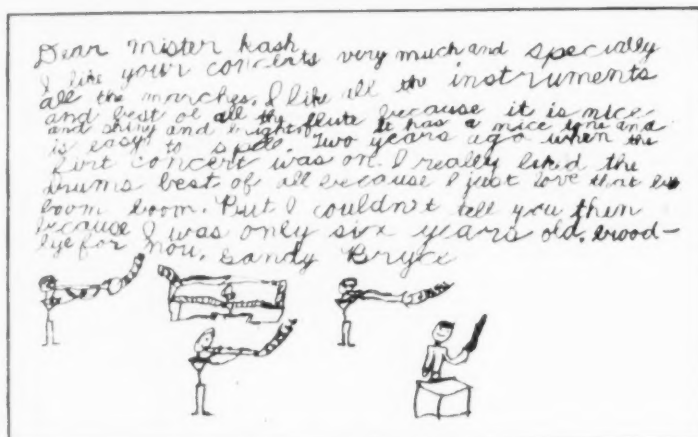 Dear Mister Kash,
I like your concerts very much and specially
all the marches. I like all the instruments
and best of all the flute because it is nice
and shiny and bright. It has a nice tone and
is easy to spell. Two years ago when the
first concert was on I really liked the
drums best of all because I just love that
boom boom. But I couldn't tell you then
because I was only six years old. Good-
bye for now, Sandy Bryce